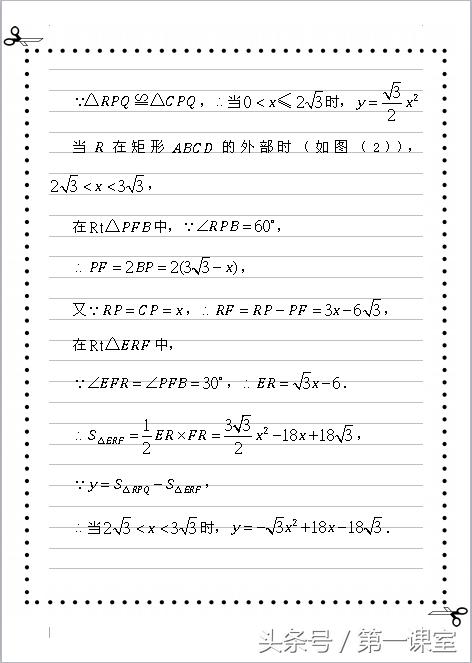 ∵△RPQ≌△CPQ，∴当0<x≤2√3时，y=√3/2 x²
当 R 在矩形 ABCD 的外部时（如图（2）），
2√3<x<3√3，
在Rt△PFB中，∵∠RPB=60°，
∴PF=2BP=2(3√3-x)，
又∵RP=CP=x，∴RF=RP-PF=3x-6√3，
在Rt△ERF中，
∵∠EFR=∠PFB=30°，∴ER=√3x-6．
∴S△ERF=1/2 ER×FR=3√3/2 x²-18x+18√3，
∵y=S△RPQ-S△ERF，
∴当2√3<x<3√3时，y=-√3x²+18x-18√3．
头条号 / 第一课室